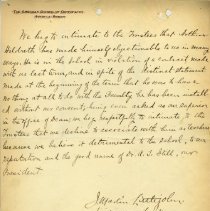 THE AMERICAN SCHOOL OF OSTEOPATHY
We beg to intimate to the Trustees that Arthur
Hildreth has made himself objectionable to us in many
ways. He is in the school in violation of a contract made
with us last June, and in spite of the Personal statement
made at the beginning of the term that he was to have
nothing at all to do with the Faculty he has been installed
without our consent, being even asked as our superior
in the office of Dean, we beg respectfully to intimate to the
Trustees that we decline to associate with him as teachers
because we believe it detrimental to the school, to our
reputation and the good name of Dr. A. T. Still, our
President.
J Martin Littlejohn